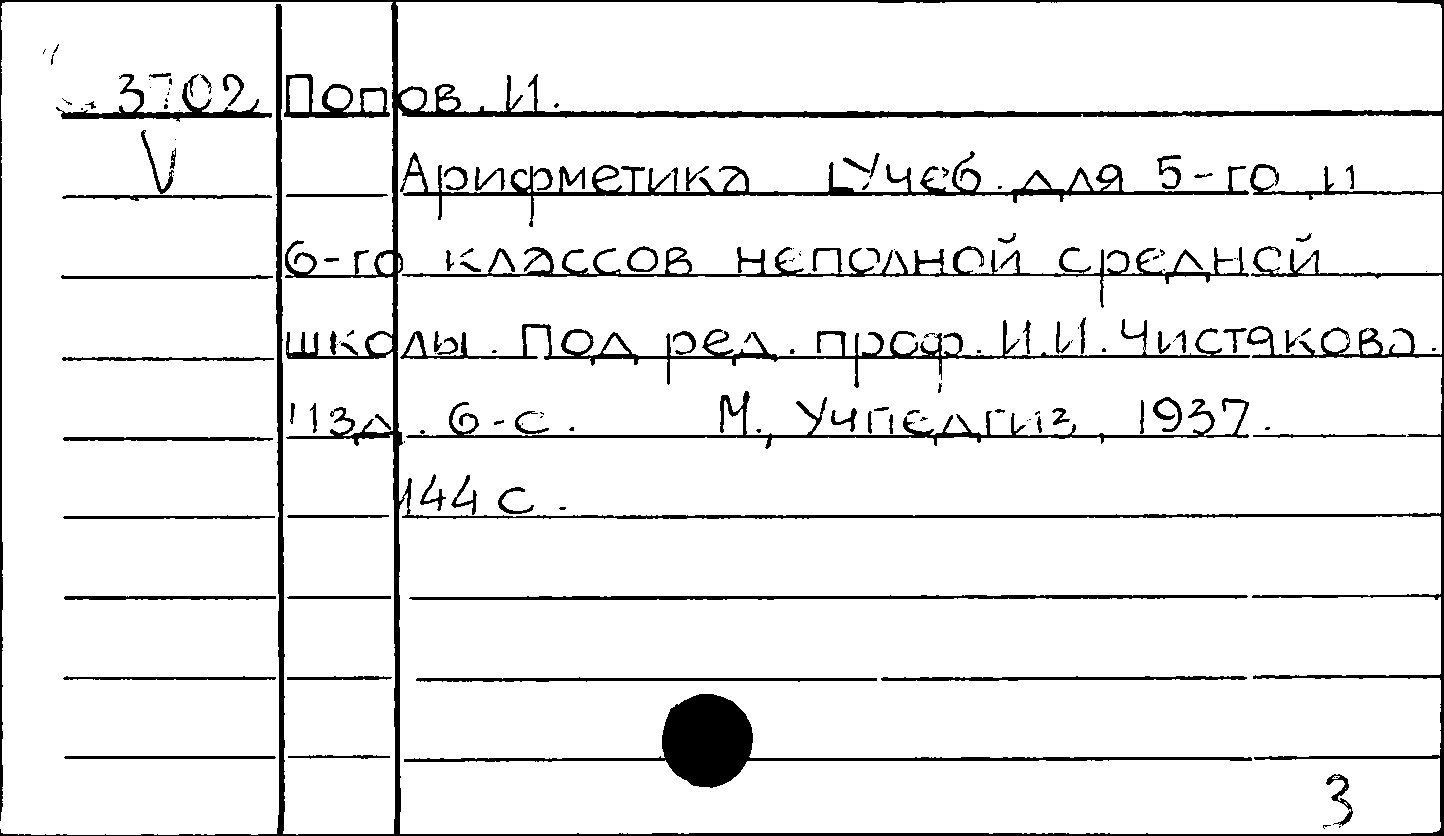 3702 Попов. И.
V Арифметика [Учеб. для 5-го и
6-го классов неполной средней
школы. Под ред. проф. И.И. Чистякова.
Изд. 6-е. М., Учпедгиз, 1937.
144 с.
3